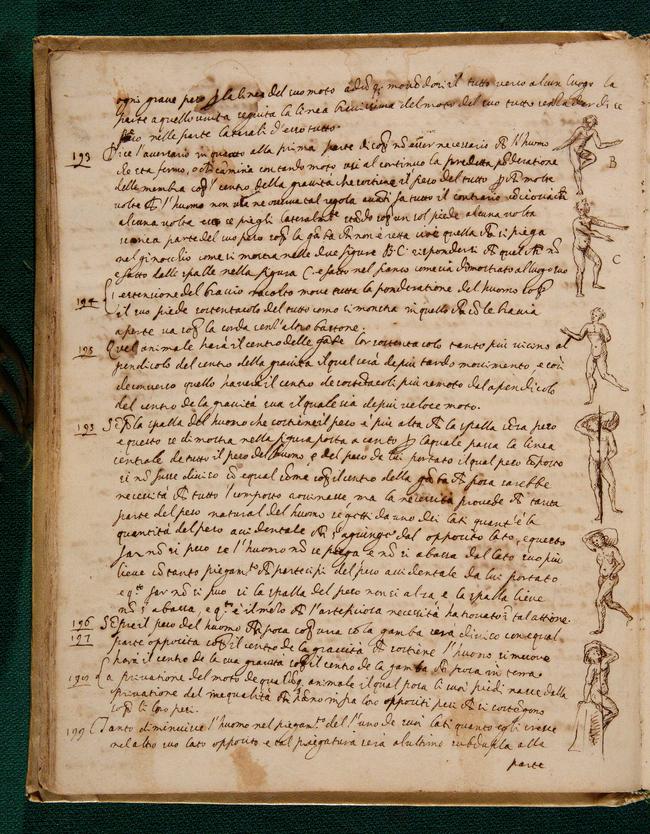 ogni grave pesa la linea del suo moto adūq movendosi il tutto verso alcun luogo la
parte a quello unita seguita la linea brevissima del moto del suo tutto senza dar di se
peso nelle parte laterali d'esso tutto.
193 Dice l'aversario in quanto alla prima parte di nō esser necessario l'huomo
che sta fermo, o che camina con tardo moto usi al continuo la predetta ponderatione
delle membra centro della gravità che sostiene il peso del tutto molte
volte l'huomo non usa ne osserva tal regola anzi fa tutto il contrario
alcuna volta esso se piega lateralmᵗᵉ stādo un sol piede alcuna volta
scarica parte del suo peso la gāba non è retta cioè quella si piega
nel ginocchio come si mostra nelle due figure B C. rispondesi quel nō
è fatto dalle spalle nella figura C. è fatto nel fianco come sia dimostrato al luogo suo
194 L'estensione del braccio racolto move tutta la ponderatione del huomo
il suo piede sostentacolo del tutto como si mostra in quello cō le braccia
aperte va la corda senz'altro bastone.
195 Quel animale harà il centro delle gābe lor sostentacolo tanto più vicino al
pendicolo del centro della gravità il qual sarà de più tardo movimento e così
de converso quello haverà il centro de sostētacoli più remoto dal apendicolo
del centro de la gravità sua il quale sia de più veloce moto.
195 Sēpre la spalla del huomo che sostiene il peso è più alta la spalla sēza peso
e questo se dimostra nella figura posta a canto la quale passa la linea
centrale de tutto il peso del huomo e del peso da lui portato il qual peso cōposto
se nō fusse diviso cō equal sōma il centro della gāba posa sarebbe
necessità tutto l'composto rovinasse, ma la necessità provede tanta
parte del peso natural del huomo se getti da uno dei lati quant'è la
quantità del peso accidentale s'agiunge dal opposito lato, e questo
far nō si può se l'huomo nō se piega e nō si abassa dal lato suo più
lieve cō tanto piegamᵗᵒ partecipi del peso accidentale da lui portato
e qᵗᵒ far nō si può si la spalla del peso non si alza e la spalla lieve
nō s'abassa, e qᵗᵒ è il mezzo l'artefitiosa necessità ha trovato ī tal attione.
196 Sēpre il peso del huomo posa una sola gamba serà diviso con equal
197 parte opposita il centro de la gravità sostiene l'huomo si move
harà il centro de la sua gravità il centro de la gamba posa in terra
198 La privatione del moto de qualūq animale il qual posa li suoi piedi nasce dalla
privatione del inequalità hāno infra loro oppositi pesi si sostēgono
li loro pesi.
199 Tanto diminuisce l'huomo nel piegamᵗᵒ del l'uno de suoi lati quanto egli cresce
nel altro suo lato opposito e tal piegatura serà al ultimo subdupla alla
parte
B
C